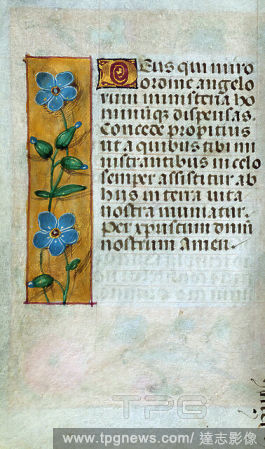 Deus qui miro
ordine angelo
rum ministeria ho
minumq̃ dispensas.
Concede propitius
ut a quibus tibi mi
nistrantibus in celo
semper assistitur ab
hiis in terra vita
nostra muniatur.
Per xpistum dñm
nostrum Amen.
TPG
www.tpgnews.com/達志影像